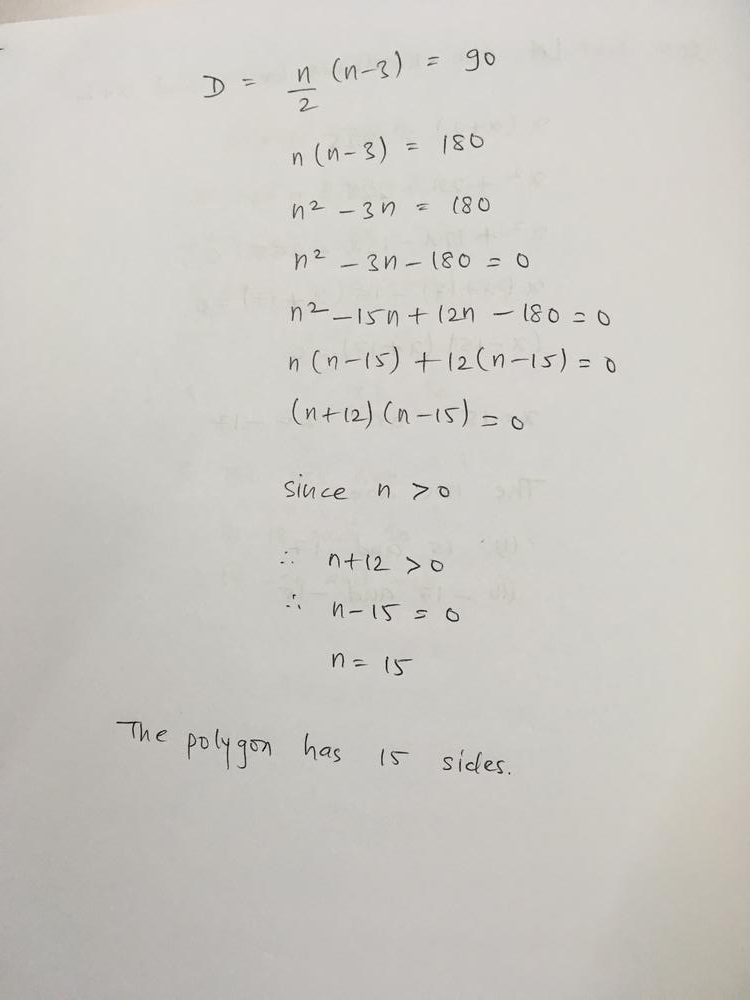 D = n/2 (n-3) = 90
n(n-3) = 180
n² - 3n = 180
n² - 3n - 180 = 0
n² - 15n + 12n - 180 = 0
n(n-15) + 12(n-15) = 0
(n+12)(n-15) = 0
since n > 0
∴ n+12 > 0
∴ n-15 = 0
n = 15
The polygon has 15 sides.